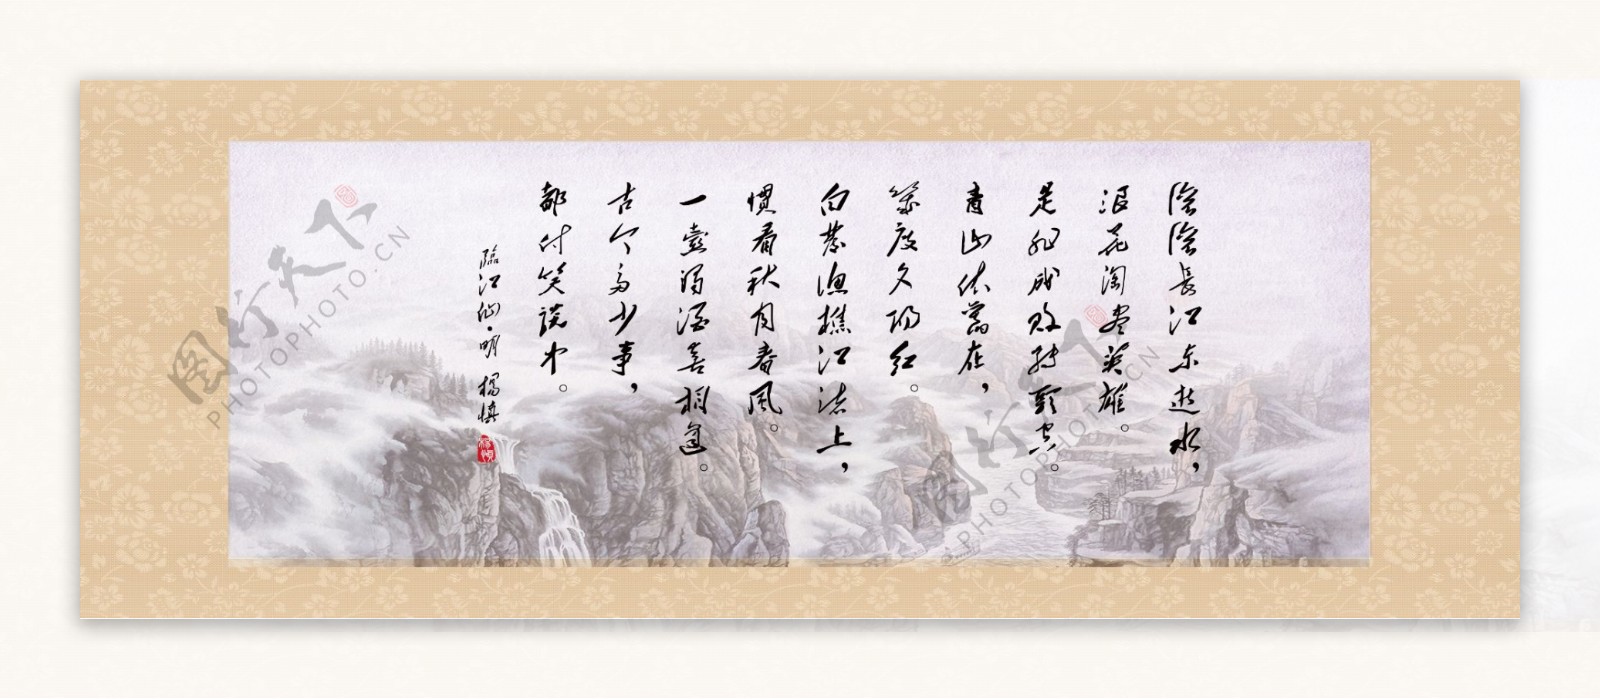 滚滚長江东逝水，
浪花淘尽英雄。
是非成败转頭空。
青山依舊在，
幾度夕阳红。
白髮渔樵江渚上，
惯看秋月春風。
一壶浊酒喜相逢。
古今多少事，
都付笑谈中。
臨江仙·明 楊慎
楊慎
图行天下
PHOTOPHOTO.CN
图行天下
PHOTOPHOTO.CN